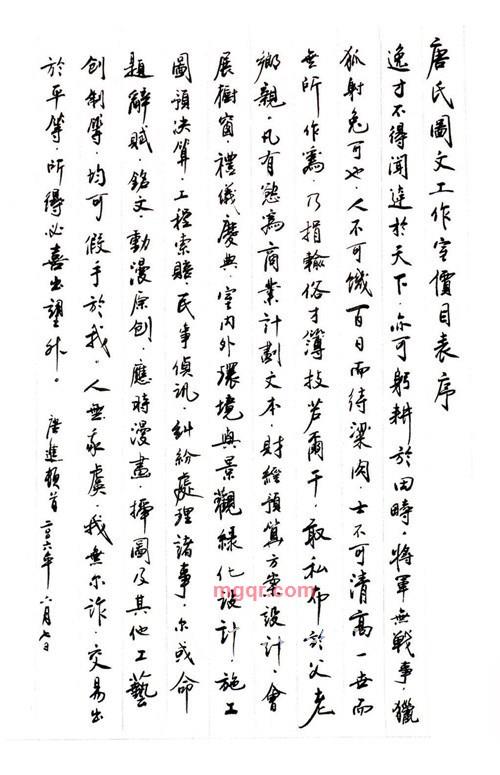 唐氏圖文工作室價目表序
逸才不得聞達於天下，亦可躬耕於田畴。將軍無戰事，獵
狐射兔可也，人不可饿百日而待梁肉，士不可清高一世而
無所作爲，乃捐输俗才薄技若爾干，取私布於父老
鄉親。凡有慾爲商業計劃文本，財經預算方案設計，會
展橱窗，禮儀慶典，室内外環境與景觀緑化设計，施工
圖預决算，工程索賠，民事偵訊，糾紛處理諸事，尔或命
題辭賦，銘文，動漫原创，應時漫畫，插圖及其他工藝
创制等，均可假手於我，人無我虞，我無尔诈，交易出
於平等，所得必喜出望外。
唐進頓首 二〇〇六年六月七日
mgqr.com